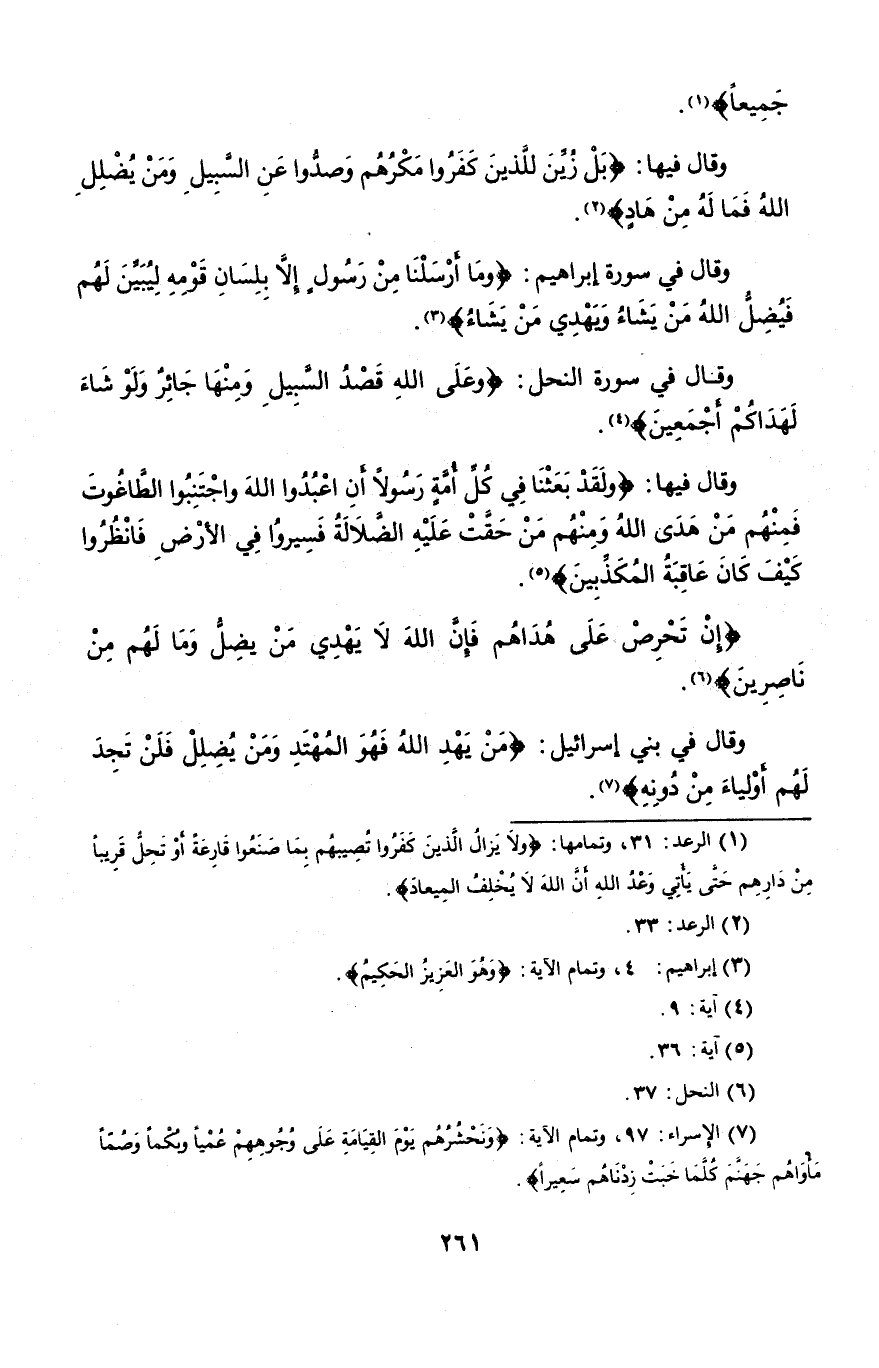 جَمِيعاً﴾(١).
وقال فيها: ﴿بَلْ زُيِّنَ للَّذينَ كَفَرُوا مَكْرُهُم وَصدُّوا عَنِ السَّبِيلِ وَمَنْ يُضْلِلِ
اللهُ فَمَا لَهُ مِنْ هَادٍ﴾(٢).
وقال في سورة إبراهيم: ﴿ومَا أَرْسَلْنَا مِنْ رَسُولٍ إلَّا بِلِسَانِ قَوْمِهِ لِيُبَيِّنَ لَهُم
فَيُضِلُّ اللهُ مَنْ يَشَاءُ وَيَهْدِي مَنْ يَشَاءُ﴾(٣).
وقال في سورة النحل: ﴿وعَلَى اللهِ قَصْدُ السَّبِيلِ وَمِنْهَا جَائِرٌ وَلَوْ شَاءَ
لَهَدَاكُمْ أَجْمَعِينَ﴾(٤).
وقال فيها: ﴿ولَقَدْ بَعَثْنَا فِي كُلِّ أُمَّةٍ رَسُولاً أَنِ اعْبُدُوا اللهَ واجْتَنِبُوا الطَّاغُوتَ
فَمِنْهُم مَنْ هَدَى اللهُ وَمِنْهُم مَنْ حَقَّتْ عَلَيْهِ الضَّلَالَةُ فَسِيروُا فِي الأرْضِ فَانْظُرُوا
كَيْفَ كَانَ عَاقِبَةُ المُكَذِّبِينَ﴾(٥).
﴿إِنْ تَحْرِصْ عَلَى هُدَاهُم فَإِنَّ اللهَ لَا يَهْدِي مَنْ يضِلُّ وَمَا لَهُم مِنْ
نَاصِرِينَ﴾(٦).
وقال في بني إسرائيل: ﴿مَنْ يَهْدِ اللهُ فَهُوَ المُهْتَدِ وَمَنْ يُضلِلْ فَلَنْ تَجِدَ
لَهُم أَوْلياءَ مِنْ دُونِهِ﴾(٧).
(١) الرعد: ٣١، وتمامها: ﴿ولاَ يَزالُ الَّذينَ كَفَرُوا تُصِيبهُم بِمَا صَنَعُوا قَارِعَةً أَوْ تَحِلُّ قَرِيباً
مِنْ دَارِهِم حَتَّى يَأْتِي وَعْدُ اللهِ أَنَّ اللهَ لَا يُخْلِفُ المِيعادَ﴾.
(٢) الرعد: ٣٣.
(٣) إبراهيم: ٤، وتمام الآية: ﴿وَهُوَ العَزِيزُ الحَكِيمُ﴾.
(٤) آية: ٩.
(٥) آية: ٣٦.
(٦) النحل: ٣٧.
(٧) الإسراء: ٩٧، وتمام الآية: ﴿وَنَحْشُرُهُم يَوْمَ القِيَامَةِ عَلَى وُجُوهِهِمْ عُمْياً وبُكْماً وَصُمّاً
مَأْوَاهُم جَهَنَّمَ كُلَّمَا خَبَتْ زِدْنَاهُم سَعِيراً﴾.
٢٦١